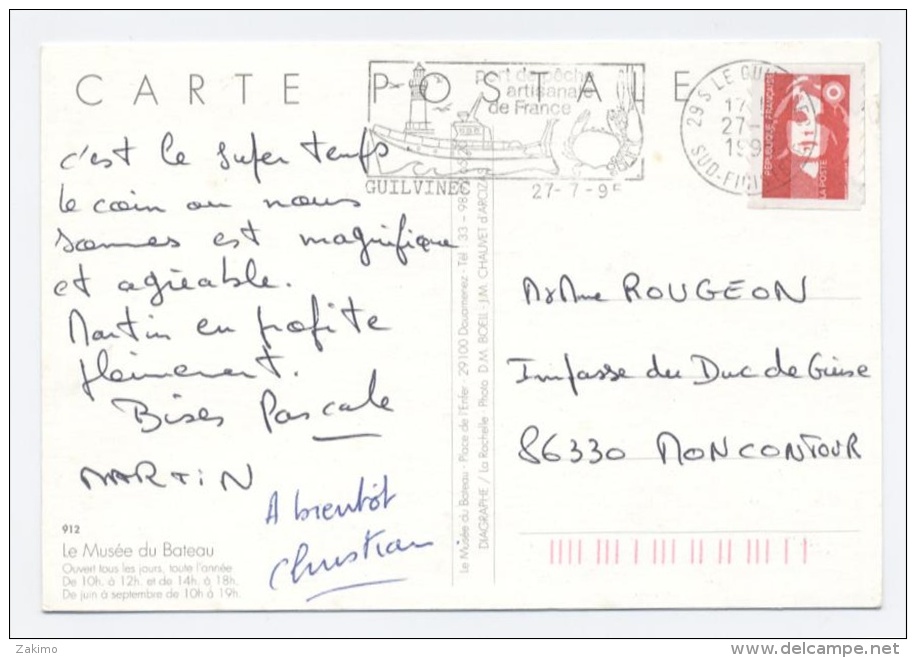 CARTE POSTALE
port de pêche
artisanale
de France
GUILVINEC
27-7-95
29 S LE GUIL
27
199
SUD-FINI
RÉPUBLIQUE FRANÇAISE
LA POSTE
c'est le super temps
le coin ou nous
sommes est magnifique
et agréable.
Martin en profite
pleinement.
Bises Pascale
MARTiN
A bientôt
Christian
M & Mme ROUGEON
Impasse du Duc de Guise
86330 MONCONTOUR
Le Musée du Bateau - Place de l'Enfer - 29100 Douarnenez - Tél. 33 - 98
DIAGRAPHE / La Rochelle - Photo D.M. BOËLL - J.M. CHAUVET d'ARCIZAS
912
Le Musée du Bateau
Ouvert tous les jours, toute l'année
De 10h. à 12h. et de 14h. à 18h.
De juin à septembre de 10h à 19h.
Zakimo
delcampe.net